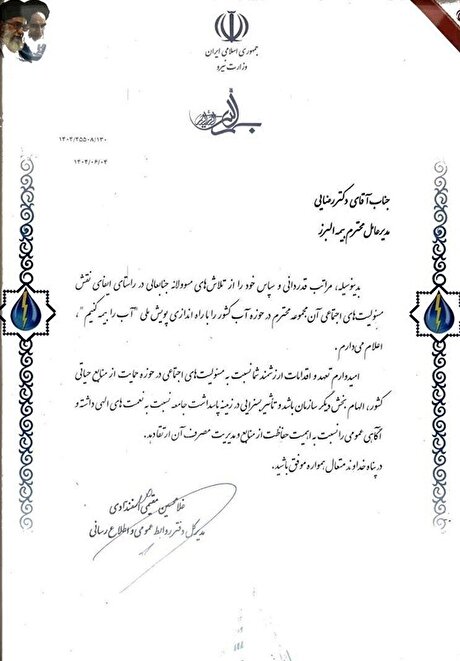 جمهوری اسلامی ایران
وزارت نیرو
۱۴۰۳/۳۵۵۰۸/۱۳۰
۱۴۰۳/۰۶/۰۴
جناب آقای دکتر رضایی
مدیرعامل محترم بیمه البرز
بدینوسیله، مراتب قدردانی و سپاس خود را از تلاش‌های مسوولانه جنابعالی در راستای ایفای نقش
مسئولیت‌های اجتماعی آن مجموعه محترم در حوزه آب کشور را با راه اندازی پویش ملی "آب را بیمه کنیم"،
اعلام می‌دارم.
امیدوارم تعهد و اقدامات ارزشمند شما نسبت به مسئولیت‌های اجتماعی در حوزه حمایت از منابع حیاتی
کشور، الهام بخش دیگر سازمان باشد و تأثیر بسزایی در زمینه پاسداشت جامعه نسبت به نعمت های الهی داشته و
آگاهی عمومی را نسبت به اهمیت حفاظت از منابع و مدیریت مصرف آن ارتقا دهد.
در پناه خداوند متعال همواره موفق باشید.
غلامحسین مقیمی اسفندآبادی
مدیرکل دفتر روابط عمومی و اطلاع رسانی